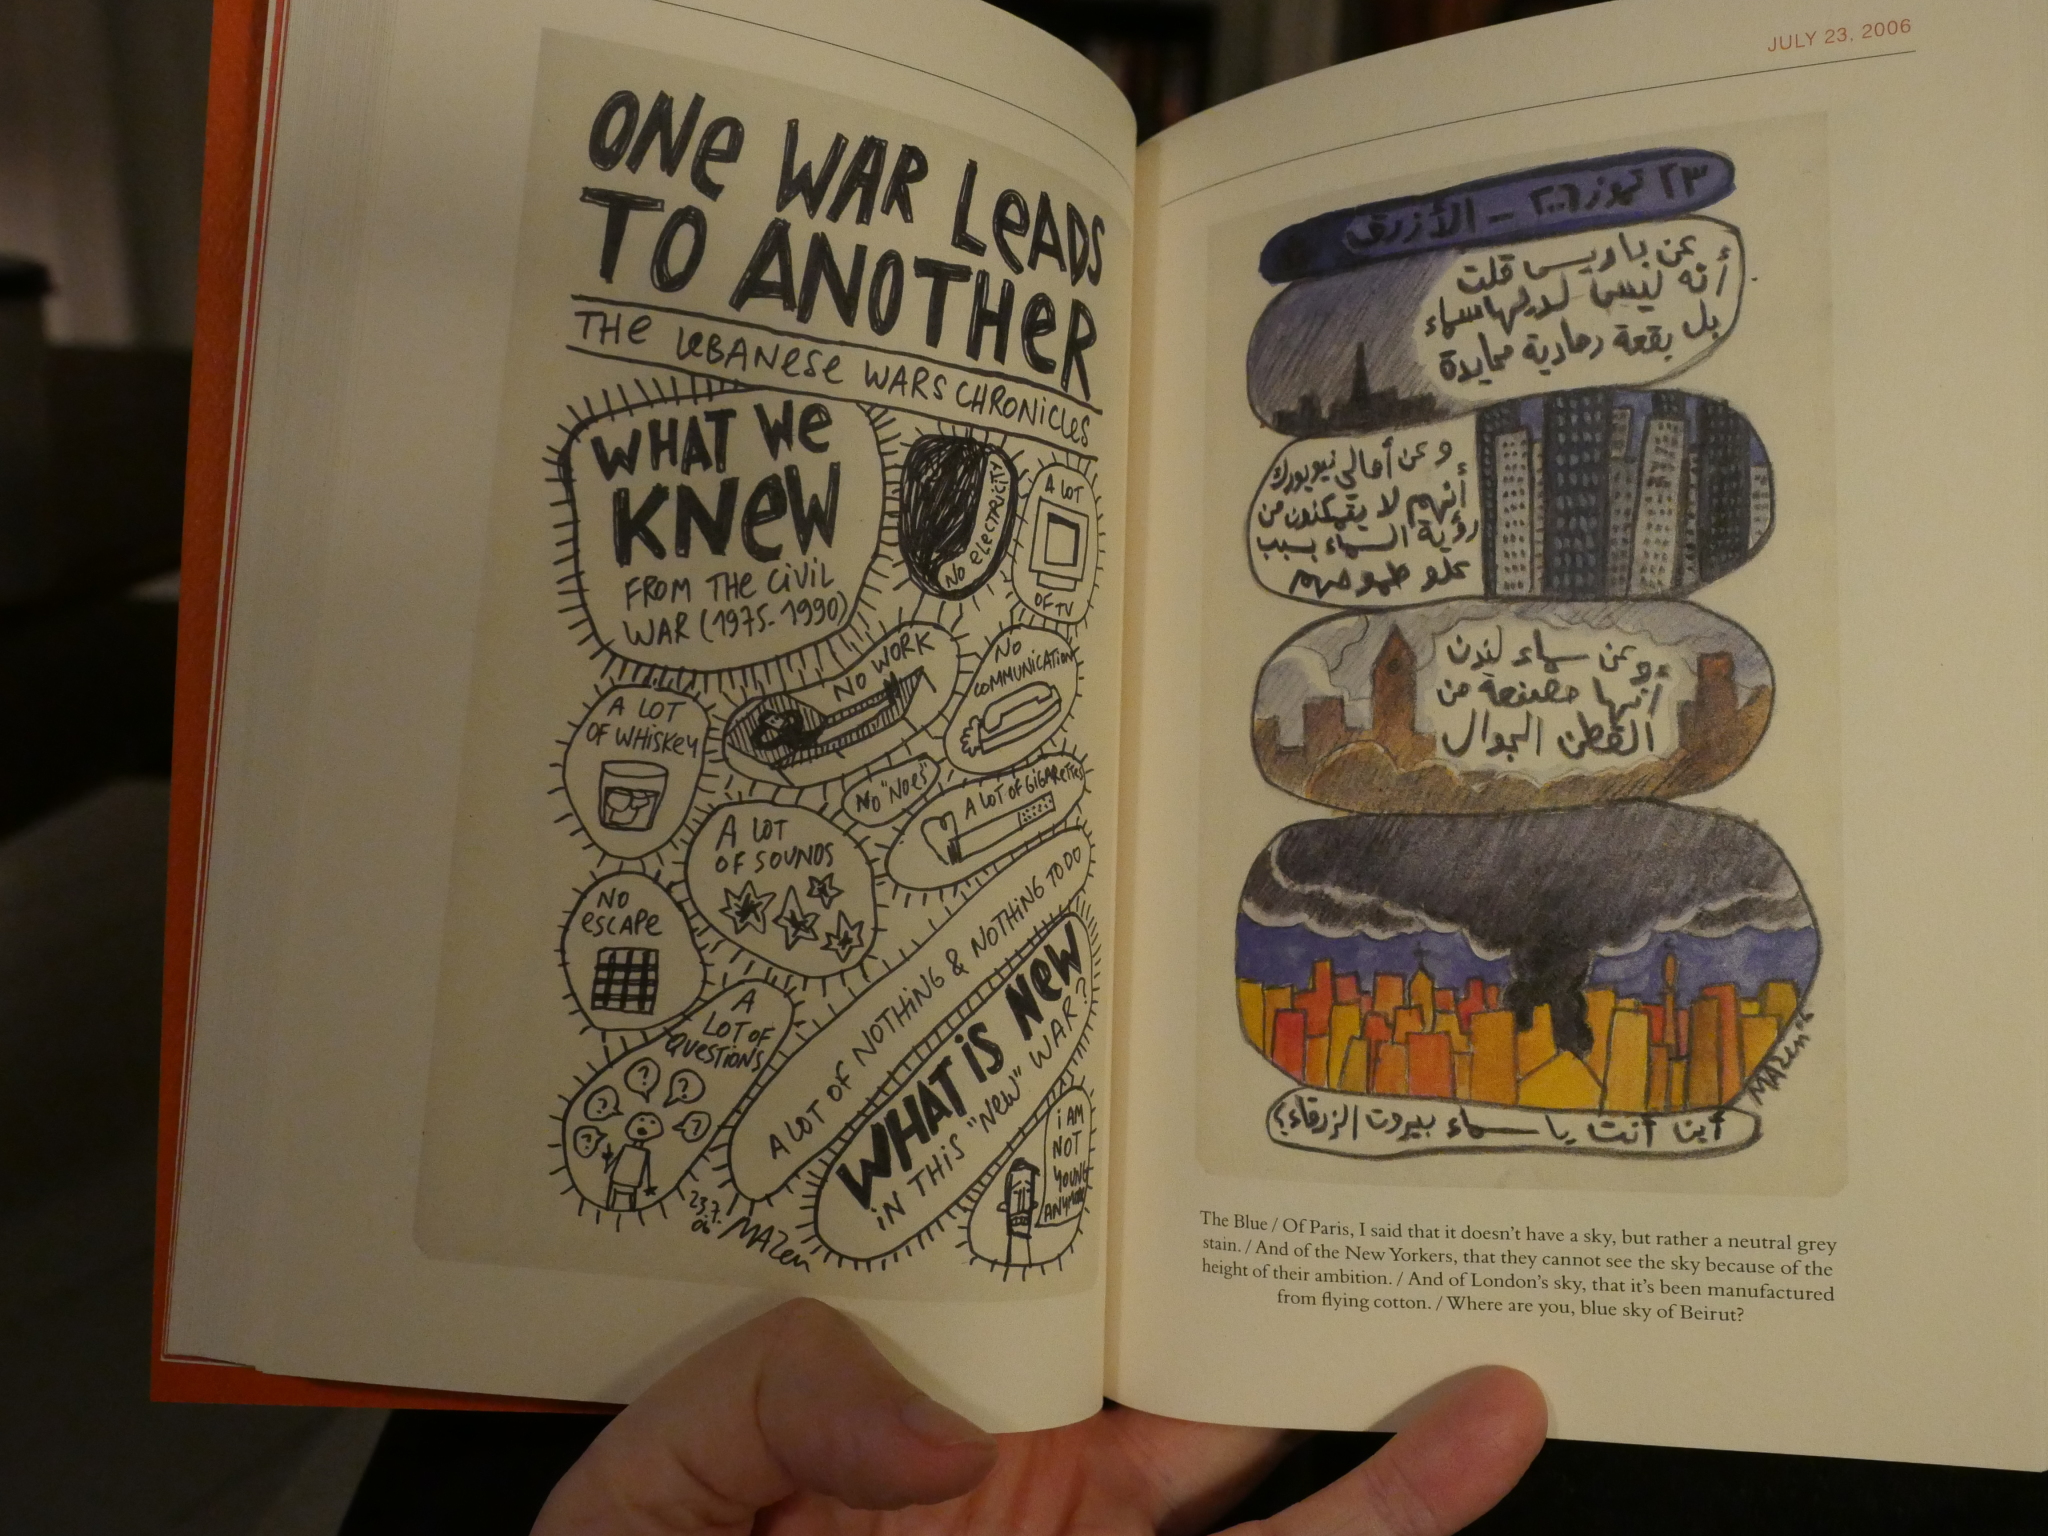 ONE WAR LEADS
TO ANOTHER
THE LEBANESE WARS CHRONICLES
WHAT WE
KNEW
FROM THE CIVIL
WAR (1975-1990)
NO ELECTRICITY
A LOT
OF TV
NO WORK
NO
COMMUNICATION
A LOT
OF WHISKEY
NO "NOES"
A LOT OF CIGARETTES
A LOT
OF SOUNDS
NO
ESCAPE
A LOT OF NOTHING & NOTHING TO DO
A
LOT OF
QUESTIONS
?
?
?
?
?
WHAT IS NEW
IN THIS "NEW" WAR?
I AM
NOT
YOUNG
ANYMORE
23.7.
06
MAZEN
JULY 23, 2006
٢٣ تموز ٢٠٠٦ – الأزرق
عن باريس قلت
أنه ليس لديها سماء
بل بقعة رمادية محايدة
و عن أهالي نيويورك
أنهم لا يتمكنون من
رؤية السماء بسبب
علو طموحهم
و عن سماء لندن
أنها مصنعة من
القطن الجوال
MAZEN 06
أين أنت يا سماء بيروت الزرقاء؟
The Blue / Of Paris, I said that it doesn't have a sky, but rather a neutral grey
stain. / And of the New Yorkers, that they cannot see the sky because of the
height of their ambition. / And of London's sky, that it's been manufactured
from flying cotton. / Where are you, blue sky of Beirut?